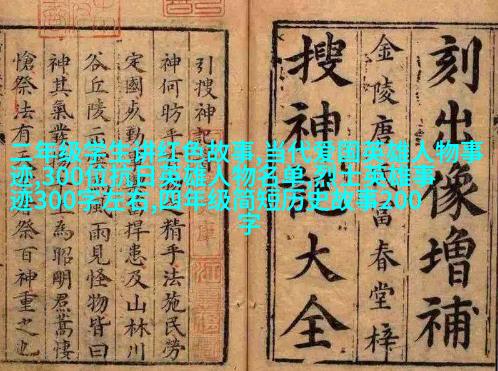 刻出像增補
金陵唐氏富春堂梓
搜神記大全
引搜神記
神何昉乎 精手法施民勞
定國 捍患及山林川
谷丘陵 見怪物皆曰
神其氣發 為昭明焄蒿悽
愴祭法有 祭百神重之也
二年级学生讲红色故事,当代爱国英雄人物事
迹,300位抗日英雄人物名单,烈士英雄事
迹300字左右,四年级简短历史故事200
字